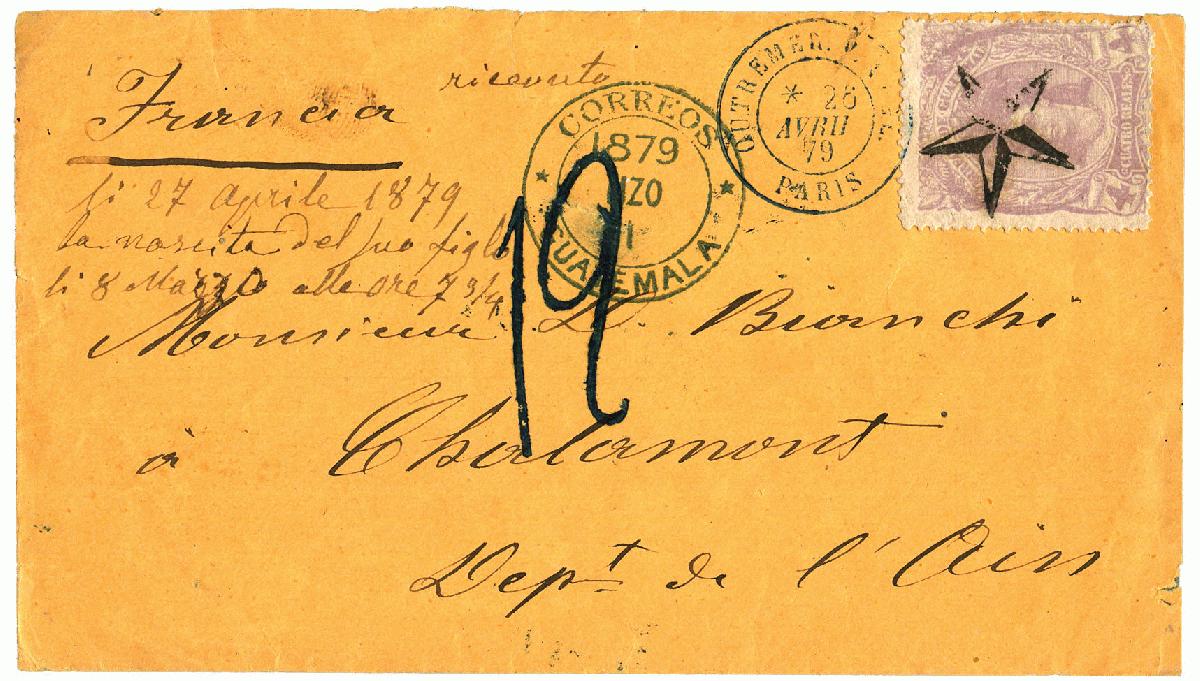 Francia
ricevuta
li 27 aprile 1879
la nascita del suo figlo
li 8 Marzo alle ore 7 3/4
CORREOS
1879
MZO
GUATEMALA
OUTREMER
* 26
AVRIL
79
PARIS
CUATRO REALES
4
4
12
Monsieur D. Bianchi
à Chalamont
Dept de l'Ain